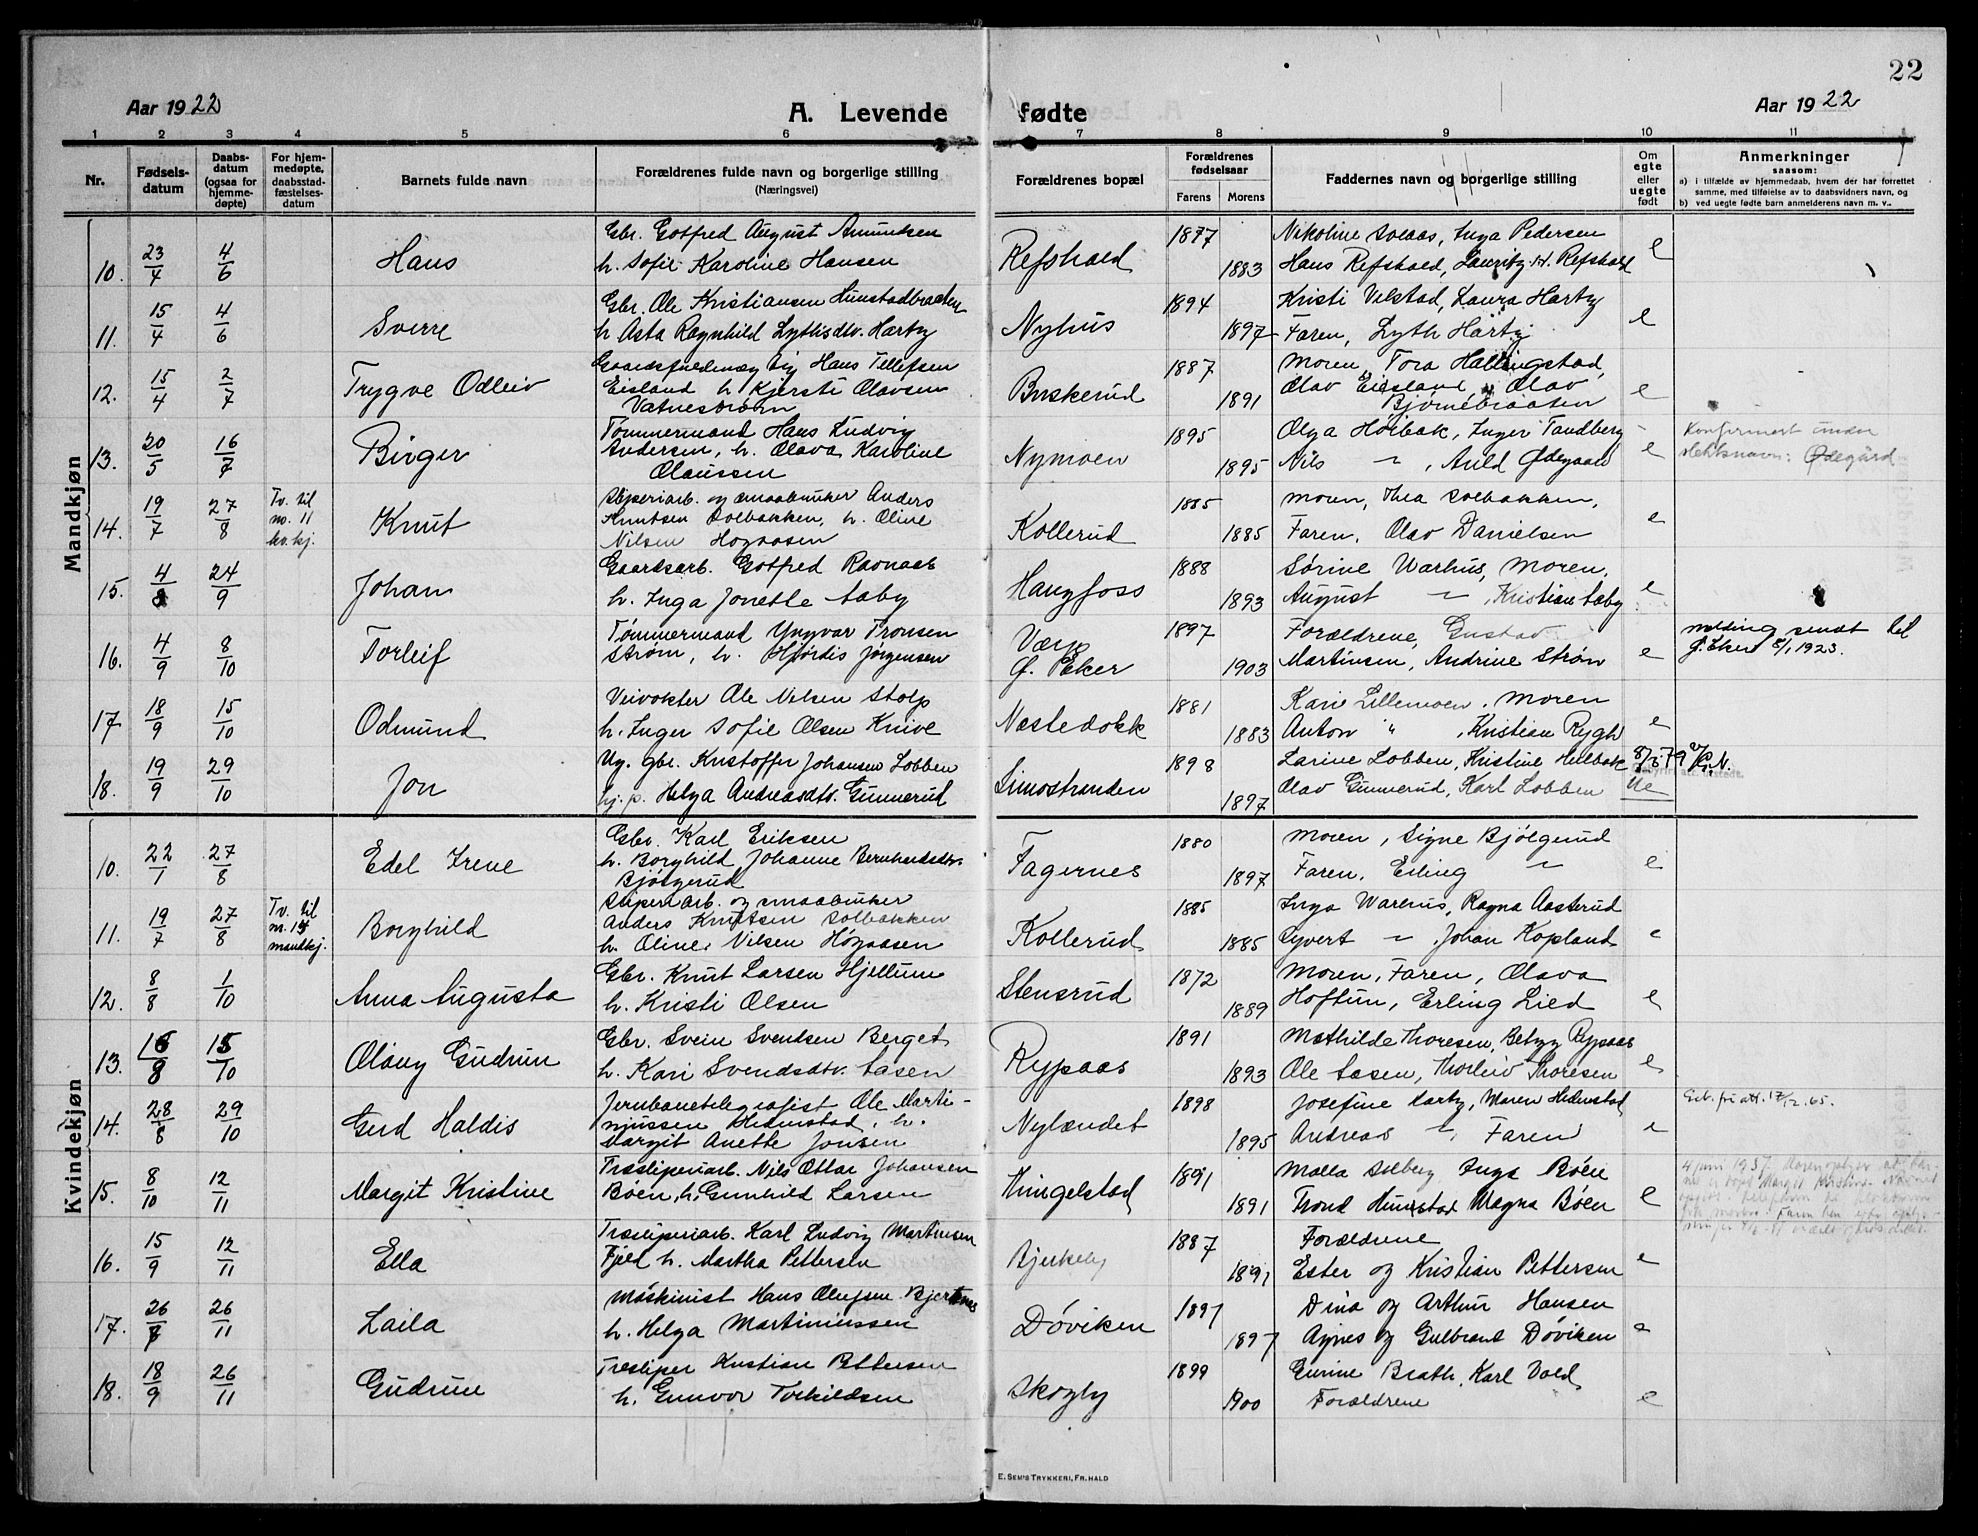 22
Aar 1922
A. Levende fødte
Aar 1922
1 2 3 4 5 6 7 8 9 10 11
Nr.
Fødsels-
datum
Daabs-
datum
(ogsaa for
hjemme-
døpte)
For hjem-
medøpte,
daabsstad-
fæstelses-
datum
Barnets fulde navn
Forældrenes fulde navn og borgerlige stilling
(Næringsvei)
Forældrenes bopæl
Forældrenes
fødselsaar
Farens Morens
Faddernes navn og borgerlige stilling
Om
egte
eller
uegte
født
Anmerkninger
saasom:
a) i tilfælde av hjemmedaab, hvem der har forrettet
samme, med tilføielse av to daabsvidners navn, og
b) ved uegte fødte barn anmelderens navn m. v..
Mandkjøn
10. 23/4 4/6 Hans
Gbr. Gotfred August Amundsen
h. Sofie Karoline Hansen
Refshald 1877 1883
Nikoline Solaas, Inga Pedersen
Hans Refshald, Lauritz H. Refshald
e
11. 15/4 4/6 Sverre
Gbr. Ole Kristiansen Hunstadbraaten
h. Asta Ragnhild Lythisdtr. Hærby
Nyhus 1894 1897
Kristi Velstad, Laura Hærby
Faren, Lyth Hærby
e
12. 15/4 2/7 Trygve Odleiv
Hans Tellefsen
Eisland h. Kjersti Olavsen
Vatnebrønn
Buskerud 1887 1891
Moren, Tora Hallingstad,
Olav Eisland, Olav
Bjørnebraaten
e
13. 30/5 16/7 Birger
Tømmermand Hans Ludvig
Andersen, h. Olava Karoline
Olaussen
Nymoen 1895 1895
Olga Hoibak, Inger Tandberg
Nils ~ , Auld Ødegaard
e
Konfirmert under
slektsnavn: Ødegård
14. 19/7 27/8
Tv. til
no. 11
kv. kj.
Knut
Sliperiarb. og smaabruker Anders
Knutsen Solbakken, h. Oline
Nilsen Hogaasen
Kollerud 1885 1885
Moren, Thea Solbakken,
Faren, Olav Danielsen
e
15. 4/8 24/9 Johan
Gaardsarb. Gotfred Ravnaas
h. Inga Jonette Saby
Haugfoss 1888 1893
Sørine Warhus, Moren,
August ~ , Kristian Saby
e
16. 4/9 8/10 Torleif
Tømmermand Yngvar Tronsen
Strøm, h. Hjørdis Jørgensen
Værp
Ø. Eker
1897 1903
Forældrene, Gustav
Martinsen, Andrine Strøm
e
melding sendt til
Ø. Eker 8/1 1923.
17. 18/9 15/10 Odmund
Veivokter Ole Nilsen Stolp
h. Inger Sofie Olsen Knive
Næstedokk 1881 1883
Karie Lillemoen, Moren
Anton " , Kristian Rygh
e
18. 19/9 29/10 Jon
Ug. gbr. Kristoffer Johansen Lobben
hj. p. Helga Andreasdtr. Gunnerud
Simostranden 1898 1897
Larine Lobben, Kristine Helbak
Olav Gunnerud, Karl Lobben
Ue
Kvindekjøn
10. 22/1 27/8 Edel Irene
Gbr. Karl Eriksen
h. Borghild Johanne Bernhardsdtr.
Bjølgerud
Fagernes 1880 1897
Moren, Signe Bjølgerud
Faren, Erling ~
e
11. 19/7 27/8
Tv. til
nr. 14
mandkj.
Borghild
Sliperiarb. og smaabruker
Anders Knutsen Solbakken
h. Oline Nilsen Høgaasen
Kollerud 1885 1885
Inga Warhus, Ragna Aasterud
Syvert ~ , Johan Kopland
e
12. 8/8 1/10 Anna Augusta
Gbr. Knut Larsen Hjellum
h. Kristi Olsen
Stensrud 1872 1889
Moren, Faren, Olava
Hoftun, Erling Lied
e
13. 16/8 15/10 Olaug Gudrun
Gbr. Svein Svendsen Berget
h. Kari Svendsdtr. Aasen
Rypaas 1891 1893
Mathilde Thoresen, Betzy Rypaas
Ole Aasen, Thorleiv Thoresen
e
14. 28/8 29/10 Gerd Haldis
Jernbanetelegrafist Ole Marti-
niussen Hedenstad, h.
Margit Anette Jonsen
Nylændet 1898 1895
Josefine Hærby, Maren Hedenstad
Andreas ~ , Faren
e
17/12.65.
15. 8/10 12/11 Margit Kristine
Træsliperiarb. Nils Ottar Johansen
Bøen, h. Gunhild Larsen
Hringelstad 1891 1891
Malla Solberg Inga Bøen
Trond Hunstad Magna Bøen
e
4 juni 1937
16. 15/9 12/11 Ella
Træsliperiarb. Karl Ludvig Martinsen
Fjeld h. Martha Pettersen
Bjerkeby 1887 1891
Forældrene
Ester og Kristian Pettersen
e
17. 26/7 26/11 Laila
Maskinist Hans Olufsen Bjertnes
h. Helga Martiniussen
Døviken 1897 1897
Dina og Arthur Hansen
Agnes og Gulbrand Døviken
e
18. 18/9 26/11 Gudrun
Træsliper Kristian Pettersen
h. Gunvor Torkildsen
Skogly 1899 1900
Gunine Braath, Karl Vold
Forældrene
e
E. SEM'S TRYKKERI, FR. HALD